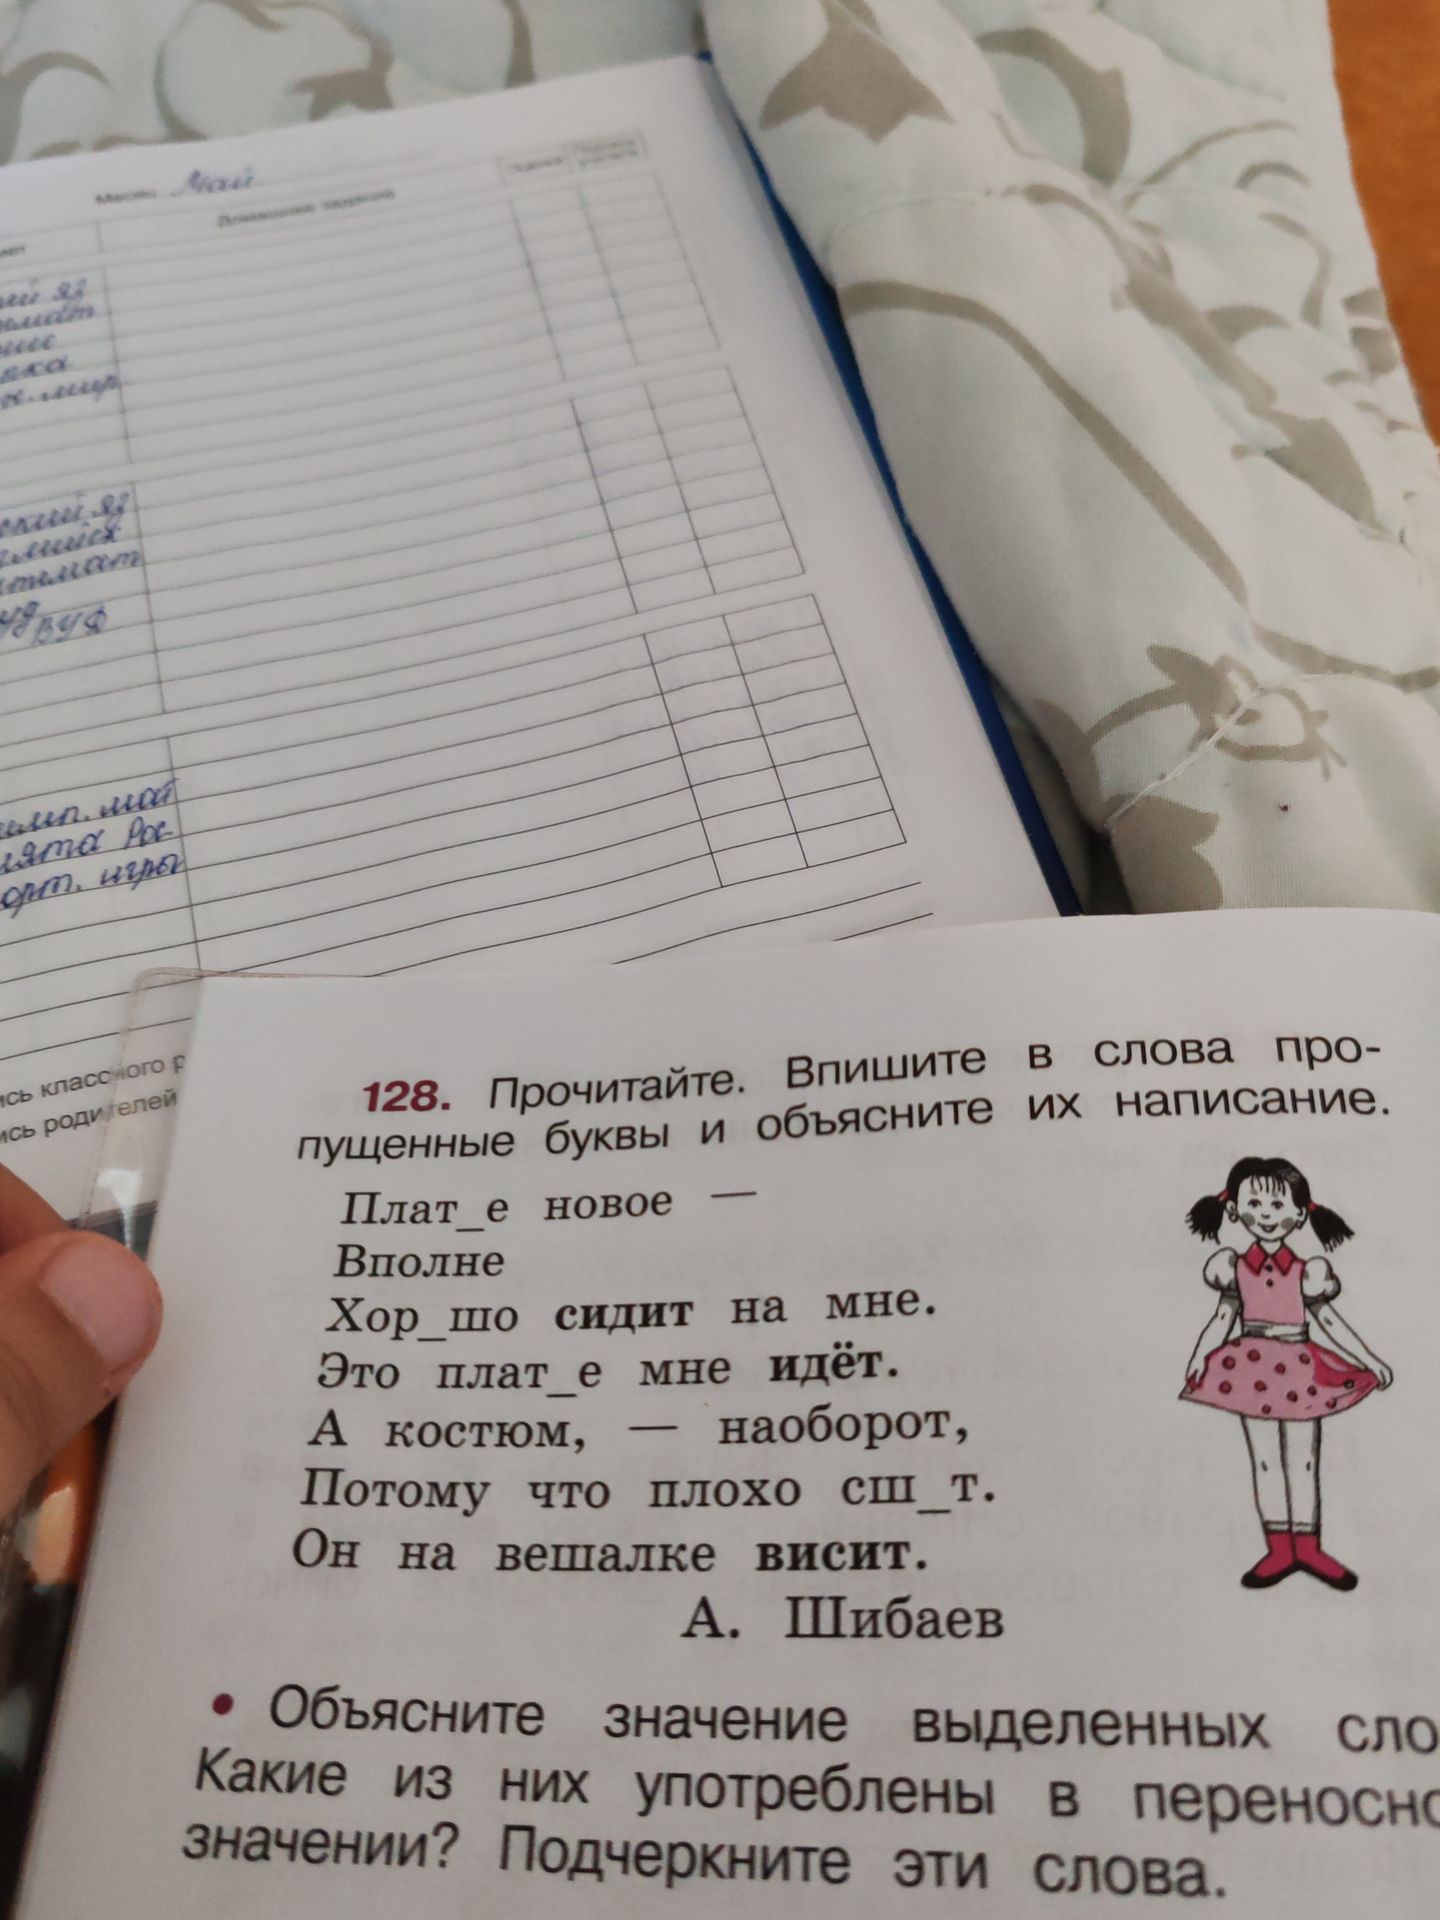 Месяц Май
Домашнее задание
Оценка
ий яз
ика
к. мир
ский яз
ВУД
мат
орт. игры
ись классного р
ись родителей
128. Прочитайте. Впишите в слова про-
пущенные буквы и объясните их написание.
Плат_е новое —
Вполне
Хор_шо сидит на мне.
Это плат_е мне идёт.
А костюм, — наоборот,
Потому что плохо сш_т.
Он на вешалке висит.
А. Шибаев
• Объясните значение выделенных сло
Какие из них употреблены в переносно
значении? Подчеркните эти слова.